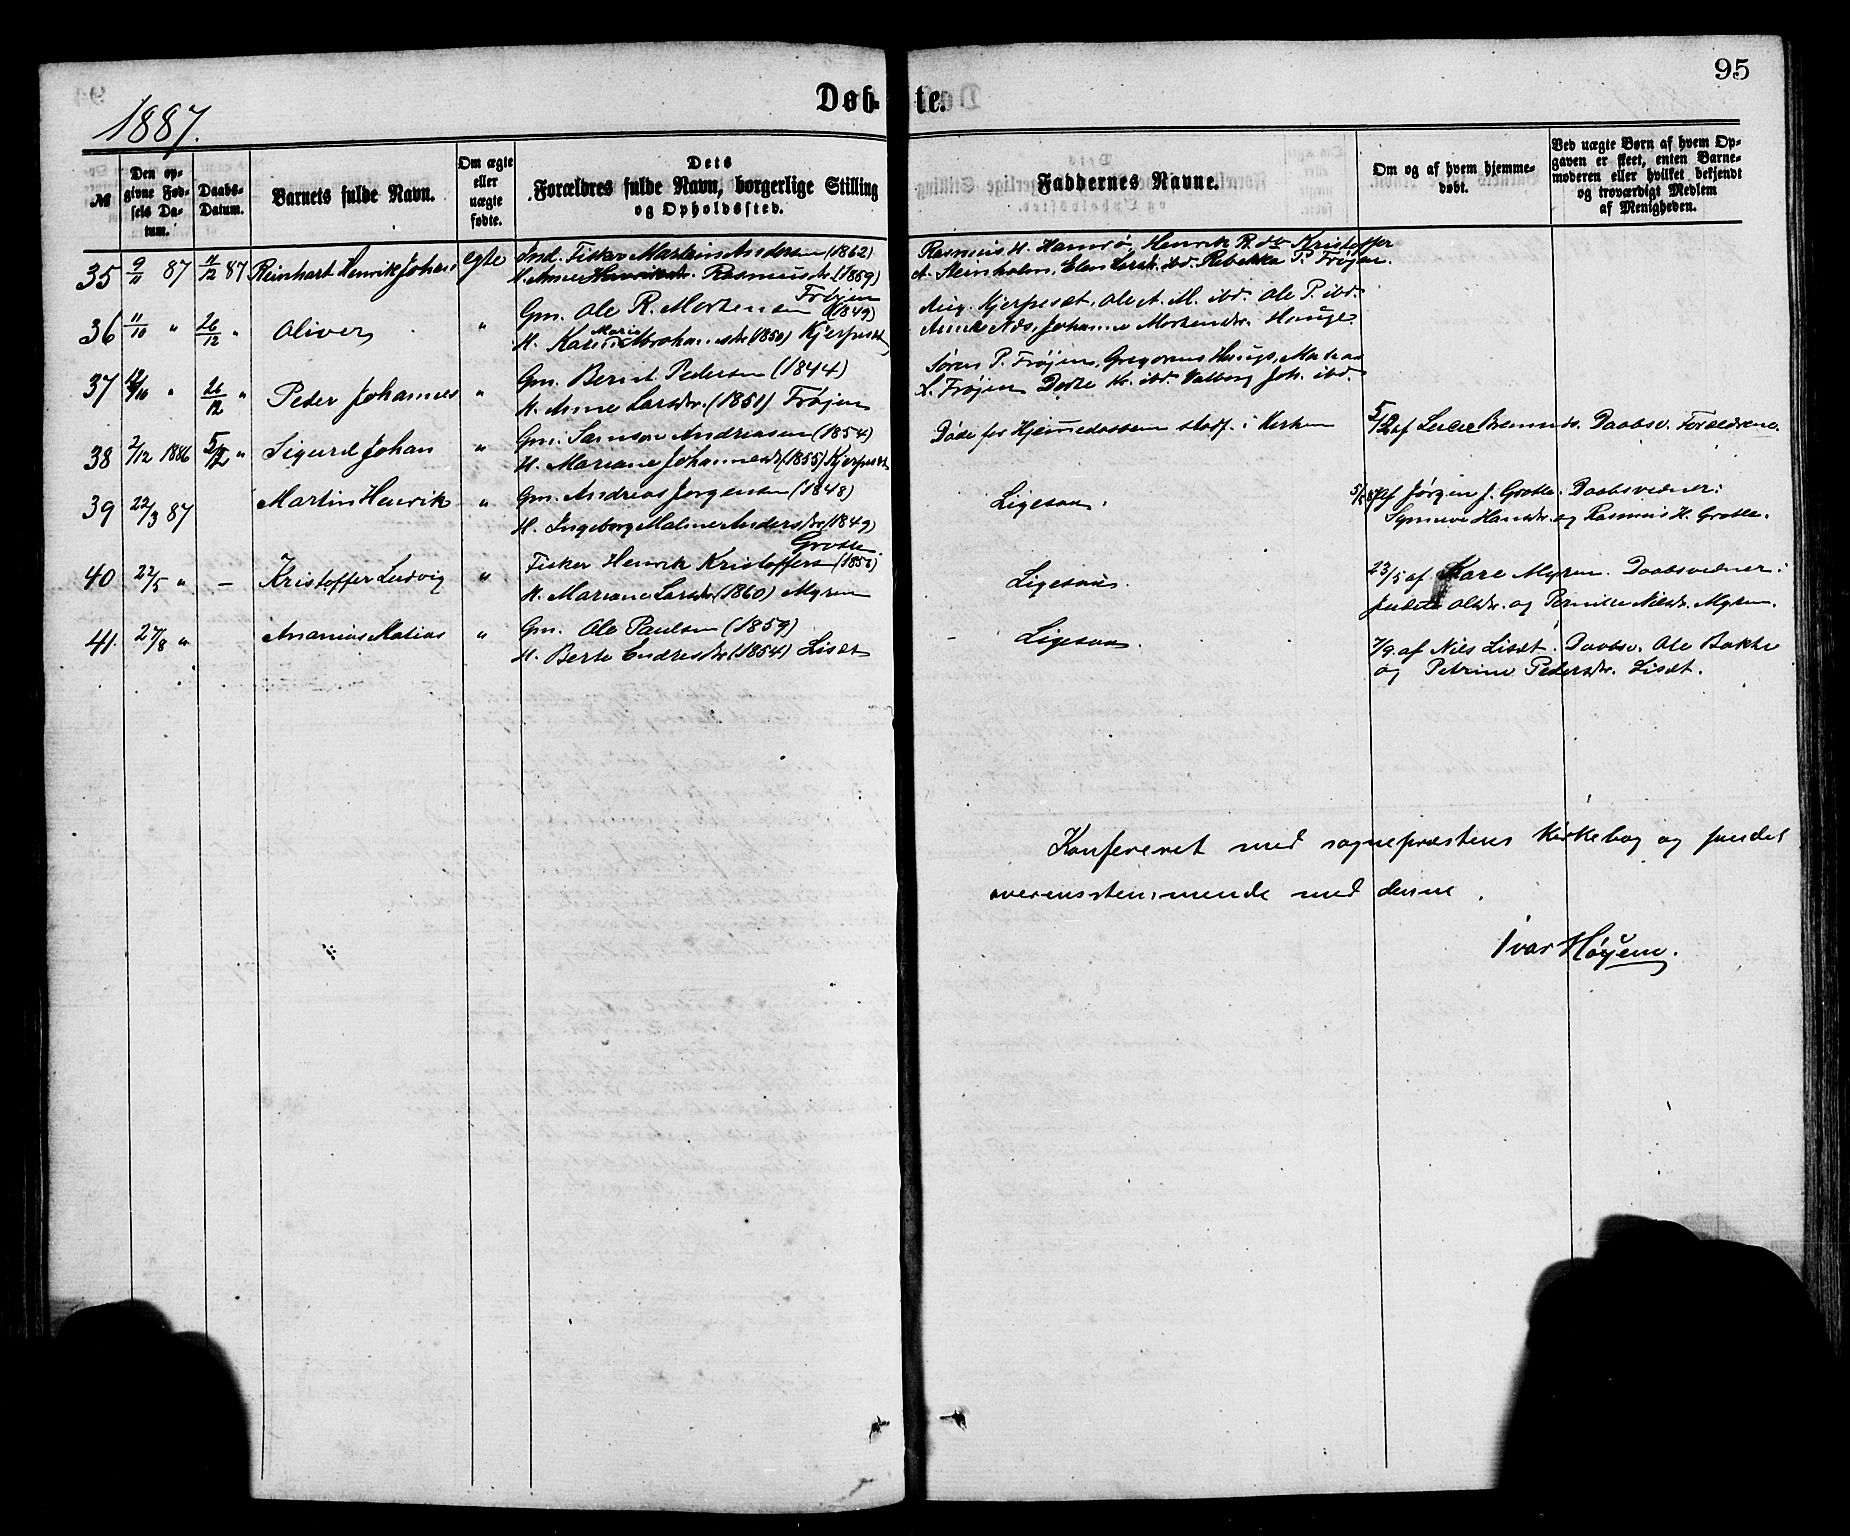 95
1887.
Døb- te.
№
Den op-
givne Fød-
sels Da-
tum.
Daabs-
Datum.
Barnets fulde Navn.
Om ægte
eller
uægte
fødte.
Dets
Forældres fulde Navn, borgerlige Stilling
og Opholdssted.
Faddernes Navne.
Om og af hvem hjemme-
døbt.
Ved uægte Børn af hvem Op-
gaven er skeet, enten Barne-
moderen eller hvilket bekjendt
og troværdigt Medlem
af Menigheden.
35 9/11 87 11/12 87 Reinhart Henrik Johan egte Ind. Fisker Martin Andersen (1862) Rasmus H. Hamrø, Henrik R. do Kristoffer
H. Anne Rasmusdr. (1859) A. Steinholm, Elen Larsdr. ibd. Rebekka P. Frøjen.
Frøjen
36 11/10 " 26/12 " Oliver " Gm. Ole R. Mortensen (1849) Aug. Kjerpeset, Ole A. M. ibd. Ole P. ibd.
H. Kari Marie Abrahamsdr (1850) Kjerpeset Anne Nds. Johanne Mortensdr. Hauge.
37 12/10 " 26/12 " Peder Johannes " Gm. Bernt Pedersen (1844) Søren P. Frøjen, Gregorius Hauge, Mathias
H. Anne Larsdr. (1851) Frøjen L. Frøjen Dorte Kr. ibd. Valborg Joh. ibd.
38 2/12 1886 5/12 " Sigurd Johan " Gm. Samson Andreasen (1854) Døde før Hjemmedaaben stadf. i Kirken 5/12 af Daabsv. Forældrene.
H. Mariane Johannesdr (1855) Kjerpeset
39 22/3 87 Martin Henrik " Gm. Andreas Jørgensen (1848) Ligesaa. af Jørgen J. Grotle. Daabsvidner:
H. Ingeborg Malene Andersdr (1849) Synneve Hansdr. og Rasmus H. Grotle.
Grotle.
40 22/5 " - Kristoffer Ludvig " Fisker Henrik Kristoffersen (1850) Ligesaa. 23/5 af Kare Myren. Daabsvidner:
H. Mariane Larsdr. (1860) Myren Olsdr. og Pernille Nilsdr. Myren.
41. 27/8 " Ananias Matias " Gm. Ole Paulsen (1859) - Ligesaa. 7/9 af Nils Liset. Daabsv. Ole Bakke
H. Berte Endresdr (1854) Liset og Petrine Pedersdr. Liset.
Konfereret med sogneprestens Kirkebog og fundet
overensstemmende med denne.
Ivar Høyem.